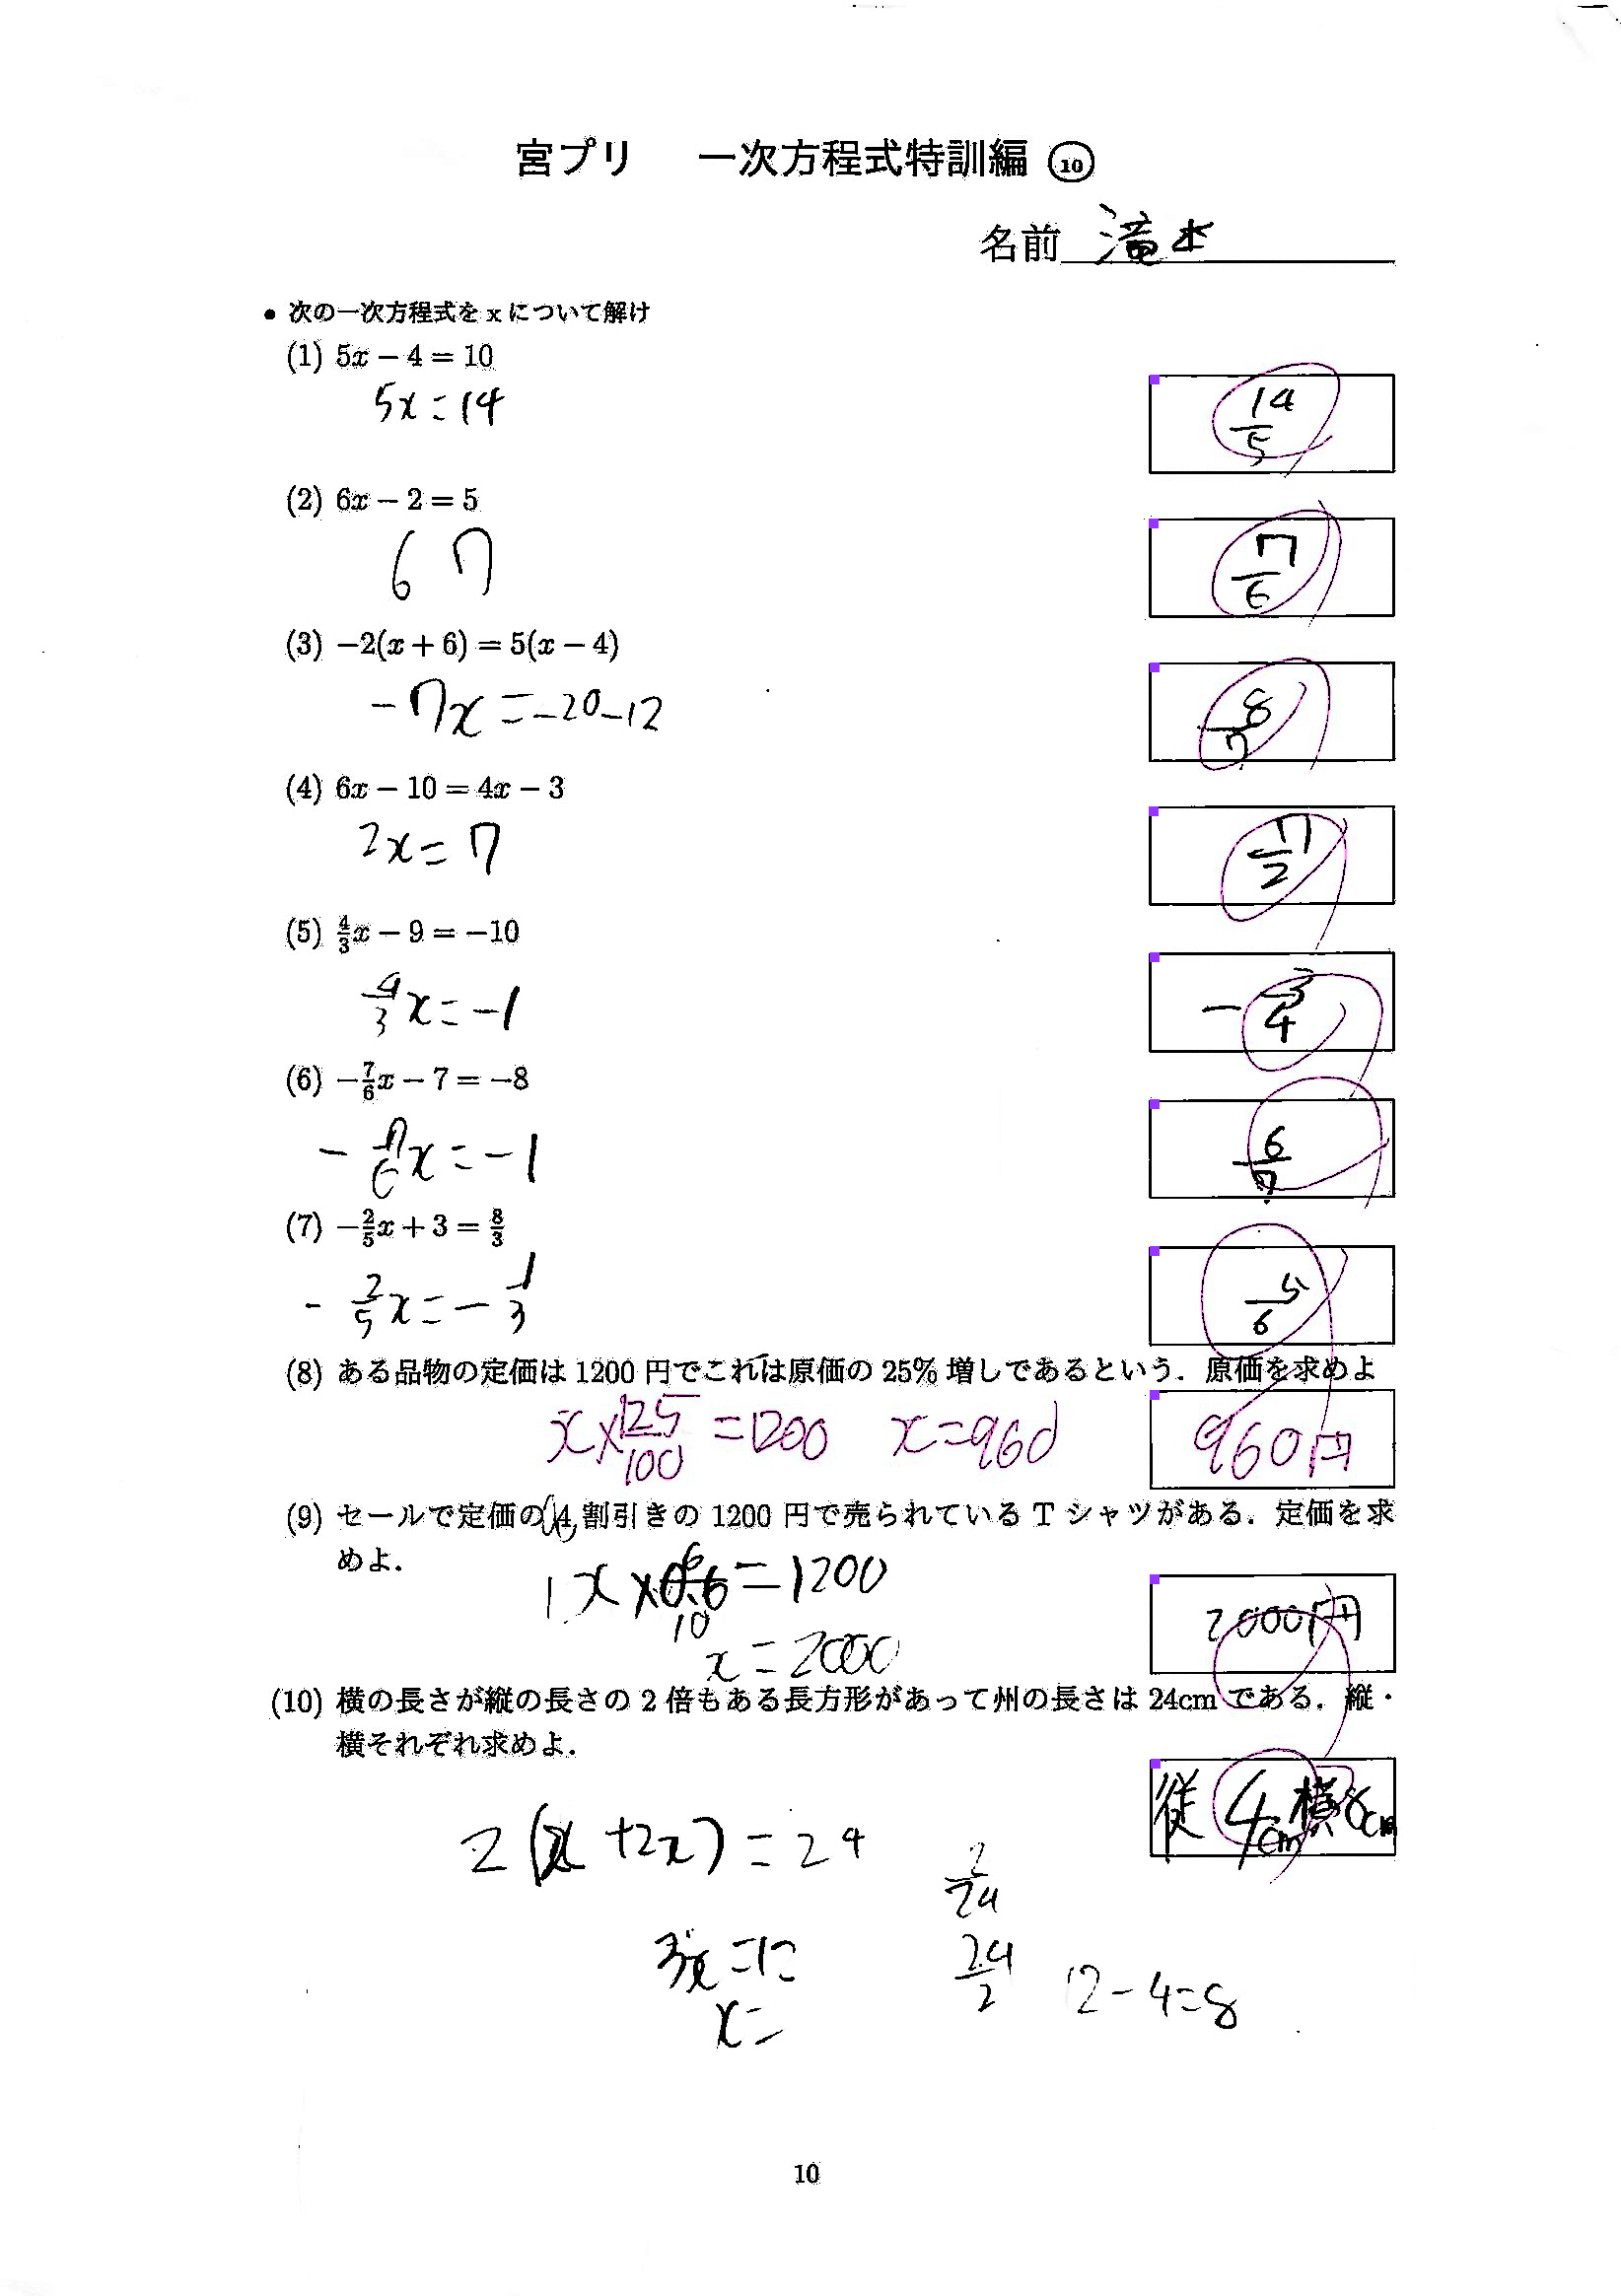 宮プリ 一次方程式特訓編 ⑩
名前 滝本
• 次の一次方程式を x について解け
(1) 5x − 4 = 10
5x = 14
14/5
(2) 6x − 2 = 5
6 7
7/6
(3) −2(x + 6) = 5(x − 4)
−7x = −20−12
8/7
(4) 6x − 10 = 4x − 3
2x = 7
7/2
(5) 4/3x − 9 = −10
4/3x = −1
− 3/4
(6) −7/6x − 7 = −8
− 7/6x = −1
6/7
(7) −2/5x + 3 = 8/3
− 2/5x = − 1/3
5/6
(8) ある品物の定価は 1200 円でこれは原価の 25% 増しであるという．原価を求めよ
x × 125/100 = 1200 x = 960
960円
(9) セールで定価の 4 割引きの 1200 円で売られている T シャツがある．定価を求
めよ．
x × 6/10 = 1200
x = 2000
2000円
(10) 横の長さが縦の長さの 2 倍もある長方形があって州の長さは 24cm である．縦・
横それぞれ求めよ．
従 4cm 横 8cm
2(x + 2x) = 24
2/24
3x = 12
24/2 12 − 4 = 8
x =
10